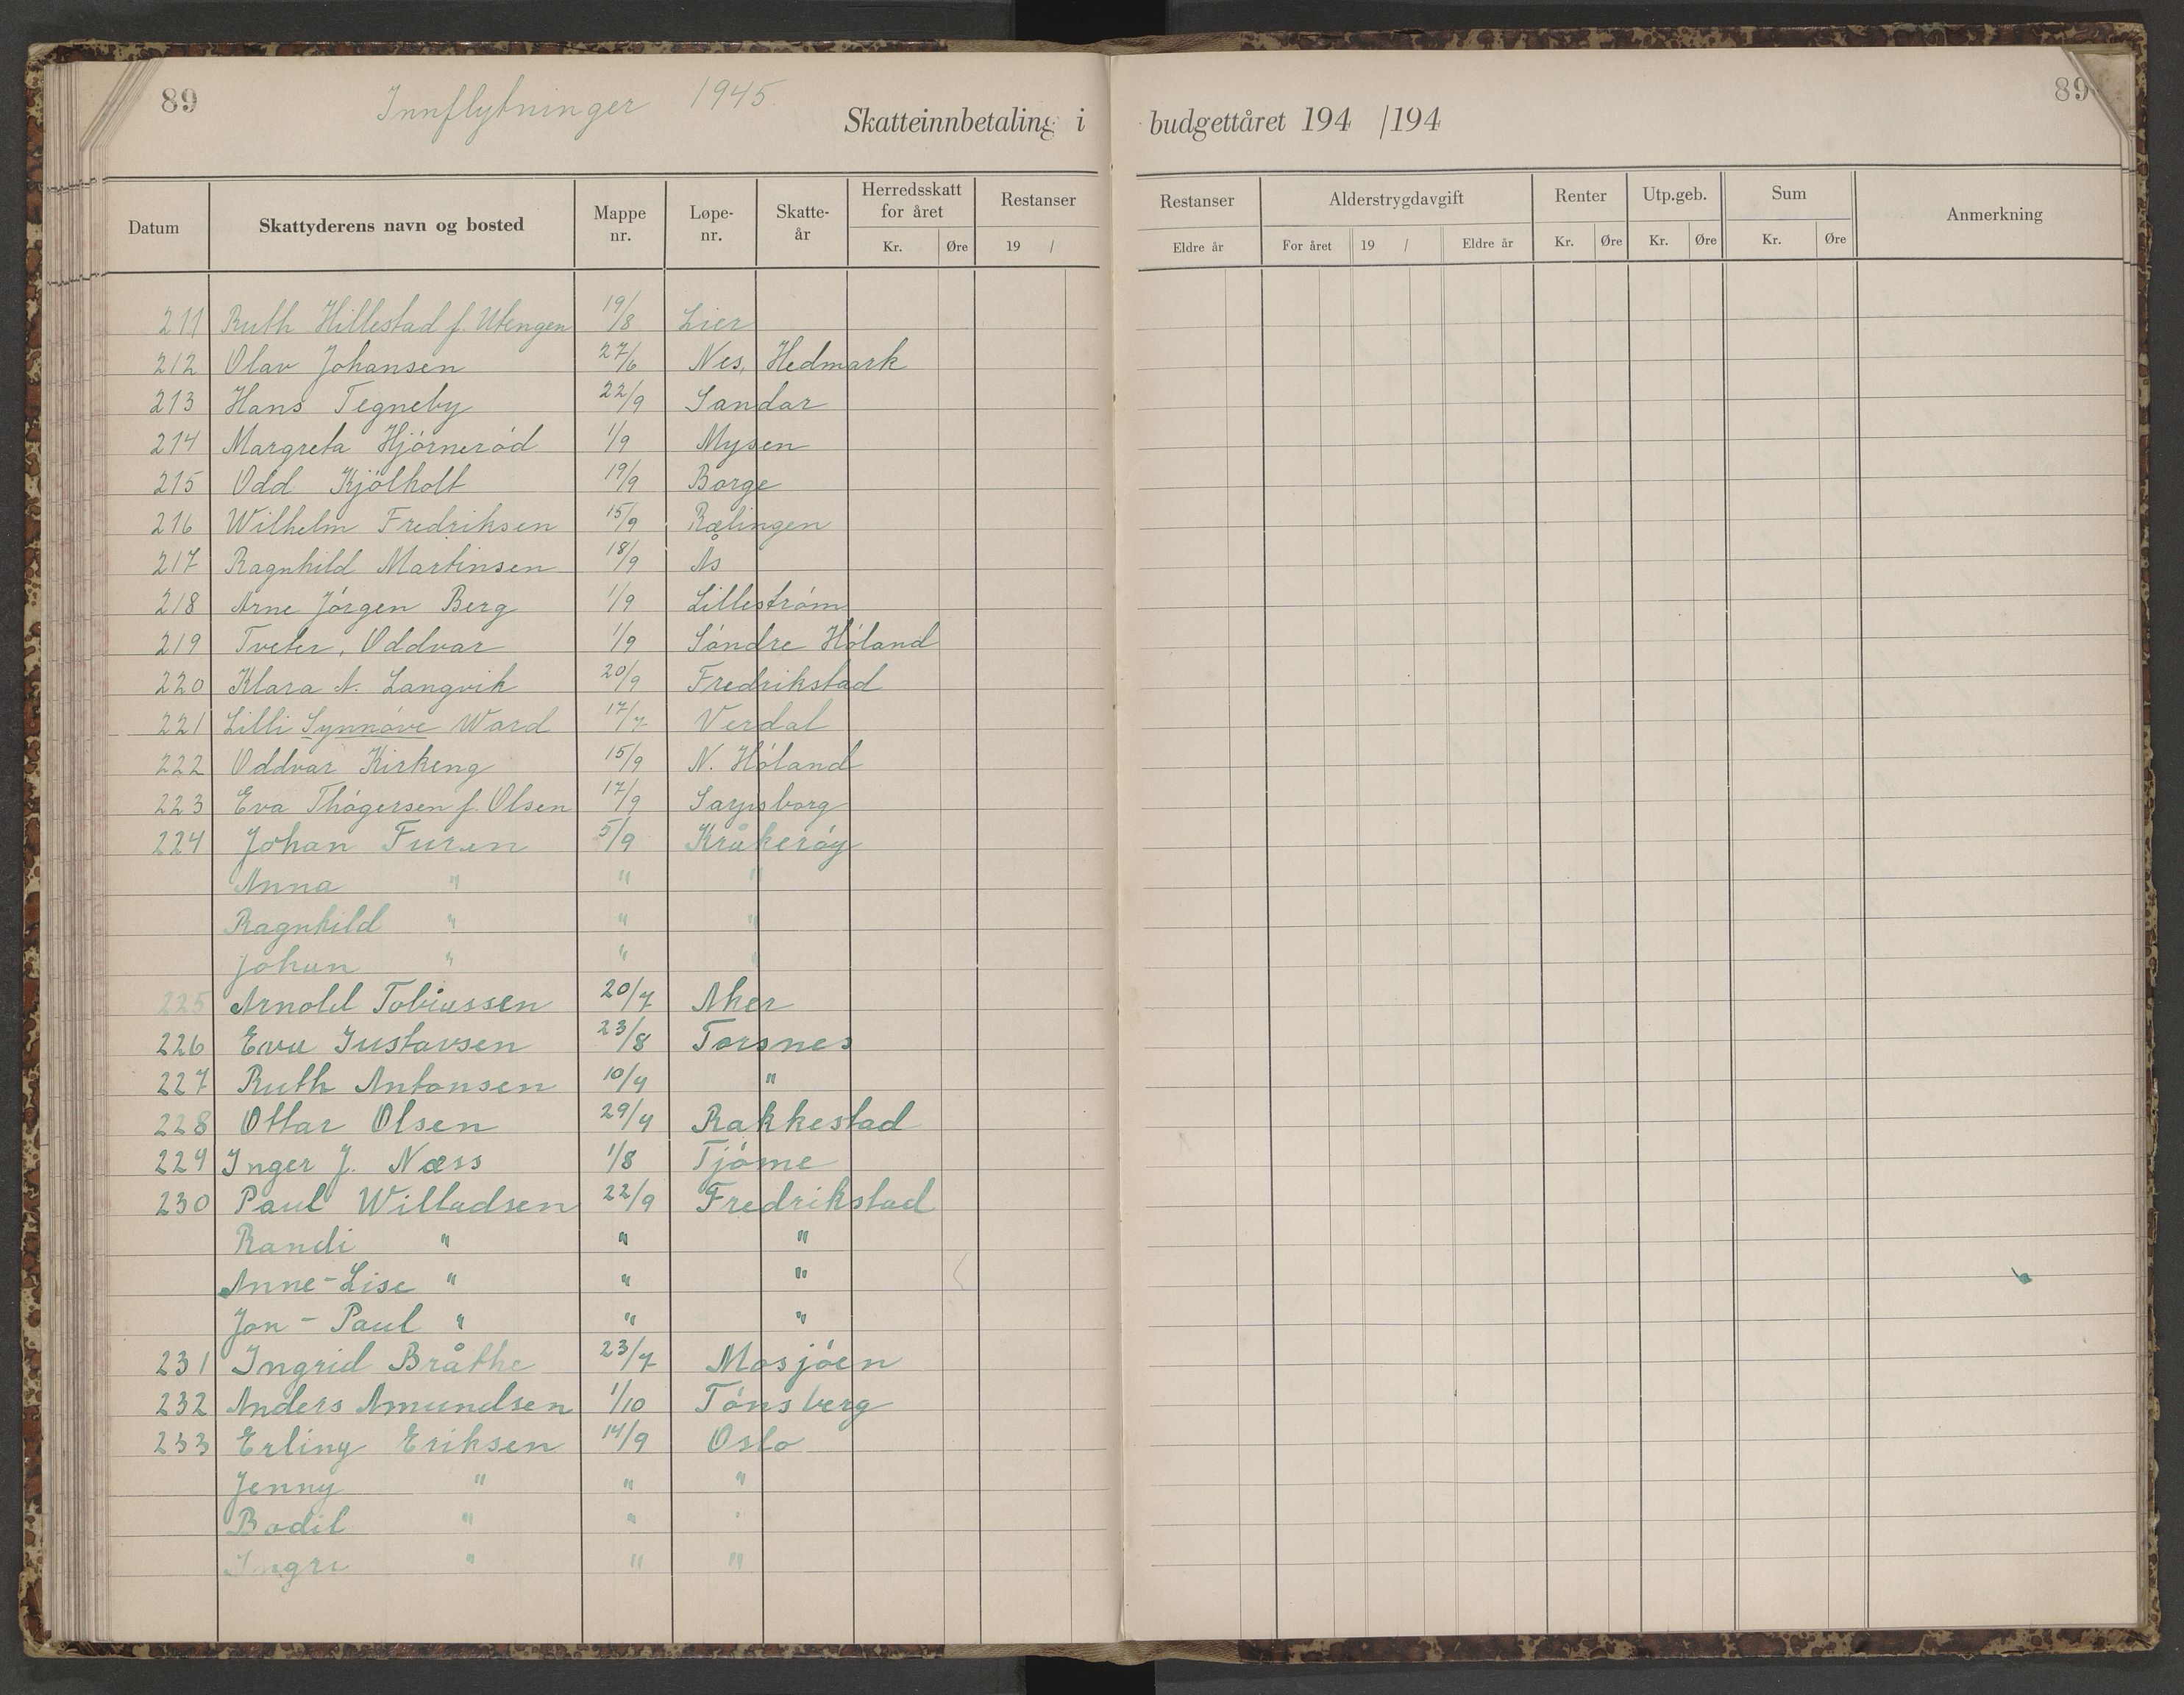 89
Innflytninger 1945
89
Skatteinnbetaling i budgettåret 194 /194
Datum Skattyderens navn og bosted Mappe nr. Løpe- nr. Skatte- år Herredsskatt for året Kr. Øre Restanser 19 / Restanser Eldre år Alderstrygdavgift For året 19 / Eldre år Renter Kr. Øre Utp.geb. Kr. Øre Sum Kr. Øre Anmerkning
211 Ruth Hillestad f. Utengen 19/8 Lier
212 Olav Johansen 27/6 Nes, Hedmark
213 Hans Tegneby 22/9 Sandar
214 Margreta Hjórneród 1/9 Mysen
215 Odd Kjólholt 19/9 Borge
216 Wilhelm Fredriksen 15/9 Rælingen
217 Ragnhild Martinsen 18/9 Ås
218 Arne Jórgen Berg 1/9 Lillestróm
219 Tveter, Oddvar 1/9 Sóndre Hóland
220 Klara A. Langvik 20/9 Fredrikstad
221 Lilli Synnóve Ward 17/7 Verdal
222 Oddvar Kirkeng 15/9 N. Hóland
223 Eva Thógersen f. Olsen 17/9 Sarpsborg
224 Johan Furen 5/9 Kråkeróy
Anna " " "
Ragnhild " " "
Johan " " "
225 Arnold Tobiassen 20/7 Aker
226 Eva Gustavsen 23/8 Torsnes
227 Ruth Antonsen 10/9 "
228 Ottar Olsen 29/9 Rakkestad
229 Inger J. Næss 1/8 Tjóme
230 Paul Willadsen 22/9 Fredrikstad
Randi " " "
Anne-Lise " " "
Jon - Paul " " "
231 Ingrid Bråthe 23/7 Mosjóen
232 Anders Amundsen 1/10 Tónsberg
233 Erling Eriksen 14/9 Oslo
Jenny " " "
Bodil " " "
Ingri " " "